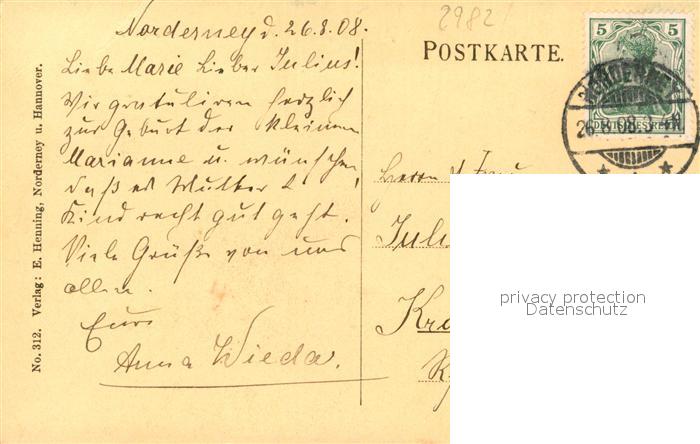 Norderney d. 26.8.08.
Liebe Marie Lieber Julius!
Wir gratuliren herzlich
zur Geburt der kleinen
Marianne u. wünschen
daß es Mutter &
Kind recht gut geht.
Viele Grüße von uns
allen.
Eure
Anna Wieda.
2982
POSTKARTE.
5 5
DEUTSCHES REICH
NORDERNEY
26.8.08.
Herrn u Frau
Juli
Kr
No. 312. Verlag: E. Henning, Norderney u. Hannover.
privacy protection
Datenschutz